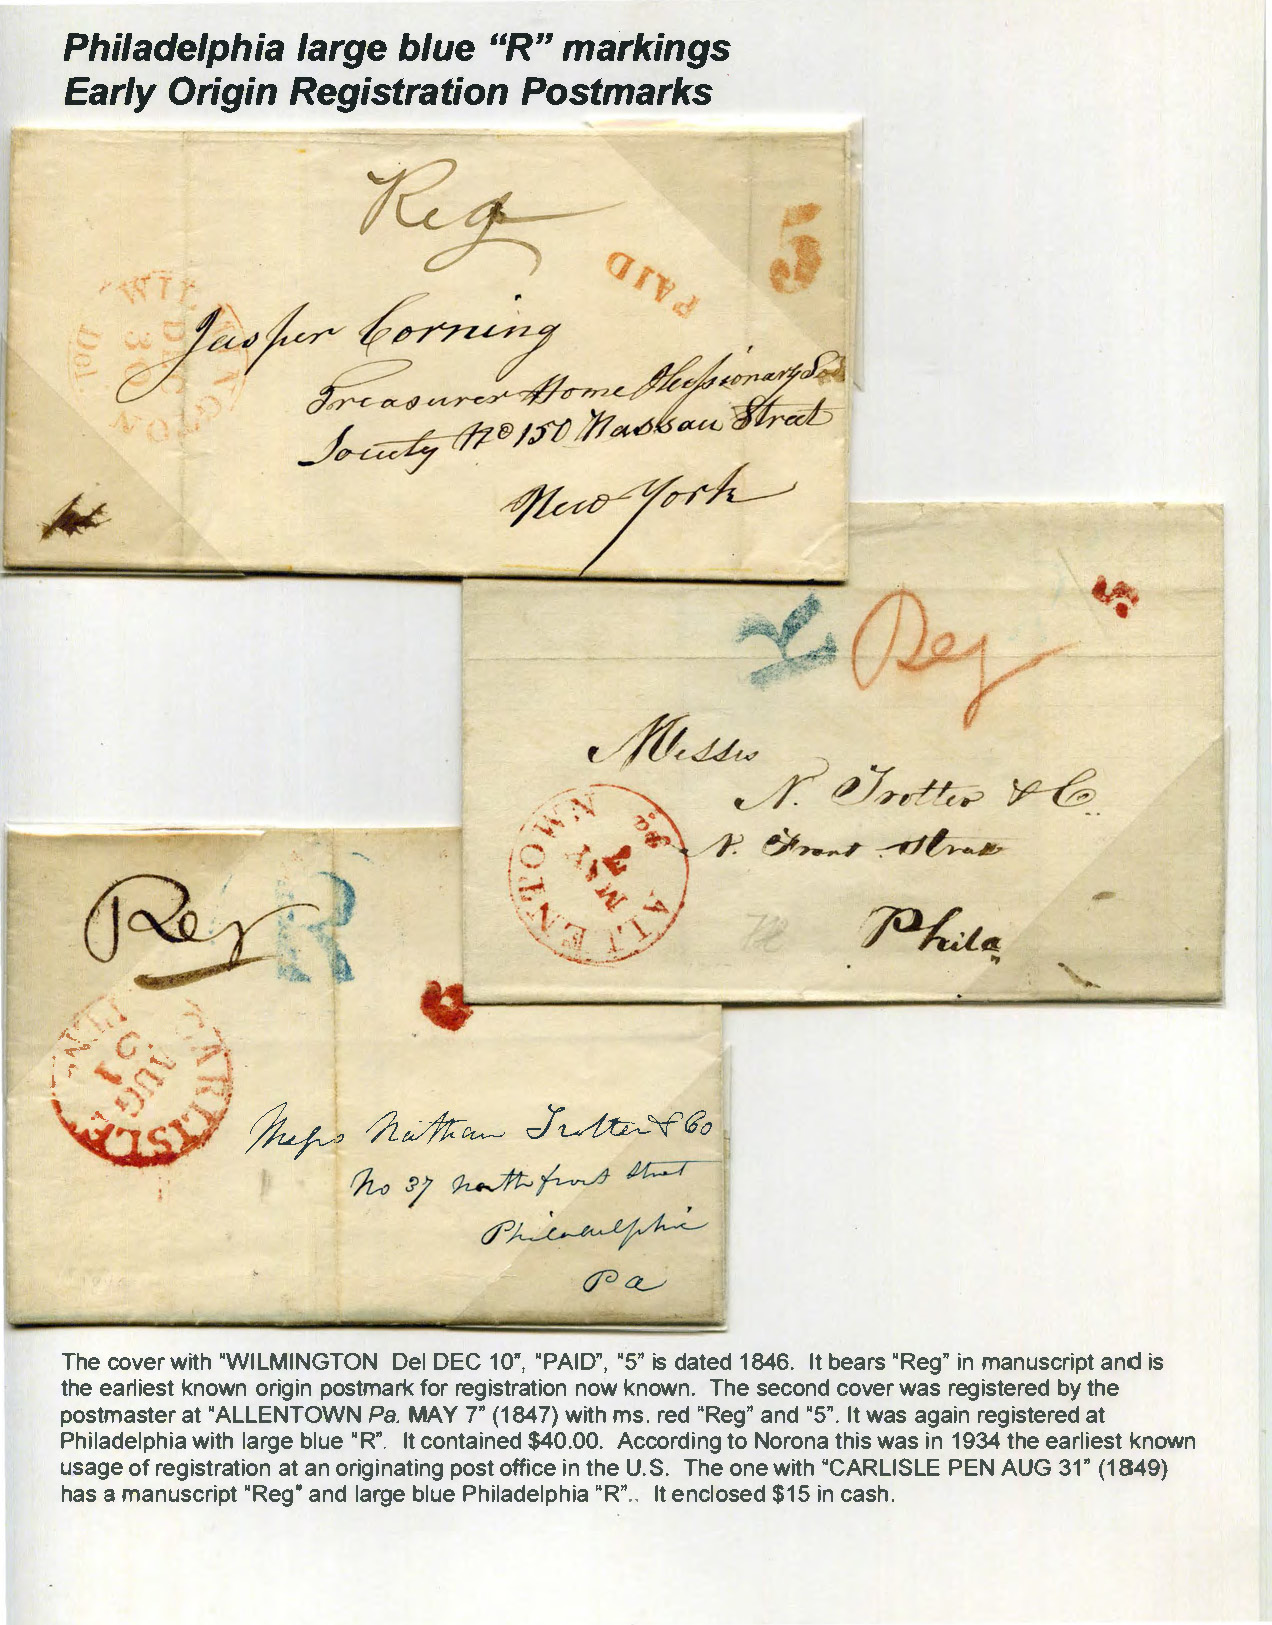 Philadelphia large blue “R” markings
Early Origin Registration Postmarks
Reg
PAID
5
WILMINGTON Del
DEC
30
Jasper Corning
Treasurer Home Missionary
Society No 150 Nassau Street
New York
R
Reg
5
Messrs
N. Trotter & Co.
N. Front Street
Phila
ALLENTOWN Pa
MAY
7
Reg
R
CARLISLE PEN
AUG
Messrs Nathan Trotter & Co
No 37 North front Street
Philadelphia
Pa
The cover with "WILMINGTON Del DEC 10", "PAID", "5" is dated 1846. It bears "Reg" in manuscript and is
the earliest known origin postmark for registration now known. The second cover was registered by the
postmaster at "ALLENTOWN Pa. MAY 7" (1847) with ms. red "Reg" and "5". It was again registered at
Philadelphia with large blue "R". It contained $40.00. According to Norona this was in 1934 the earliest known
usage of registration at an originating post office in the U.S. The one with "CARLISLE PEN AUG 31" (1849)
has a manuscript "Reg" and large blue Philadelphia "R".. It enclosed $15 in cash.